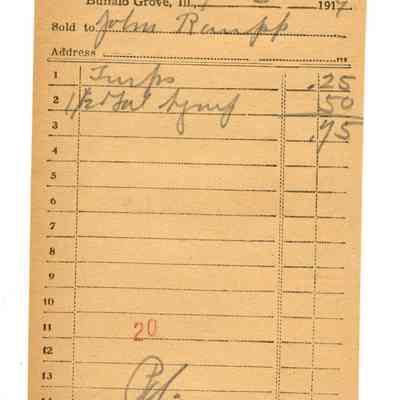 Buffalo Grove, Ill., 1917
Sold to John Rampp
Address
1 Turps .25
2 1/2 Gal 50
3 .75
4
5
6
7
8
9
10
11 20
12
13 Pd.
14